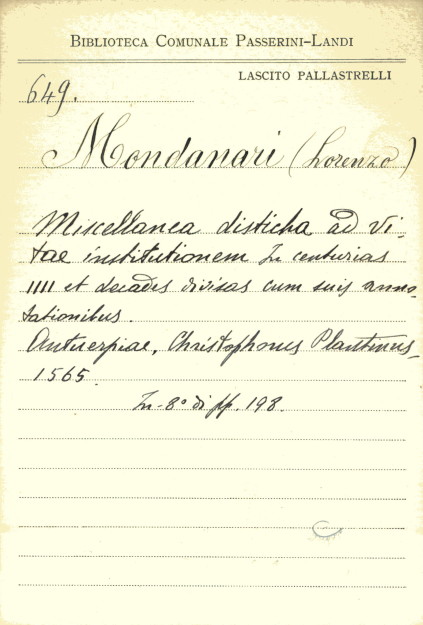 BIBLIOTECA COMUNALE PASSERINI-LANDI
LASCITO PALLASTRELLI
649.
Mondanari (Lorenzo)
Miscellanea disticha ad Vi-
tae institutionem In centurias
IIII et decades divisas cum suis anno-
tationibus.
Antuerpiae, Christophorus Plantinus,
1565.
In-8° di pp. 198.